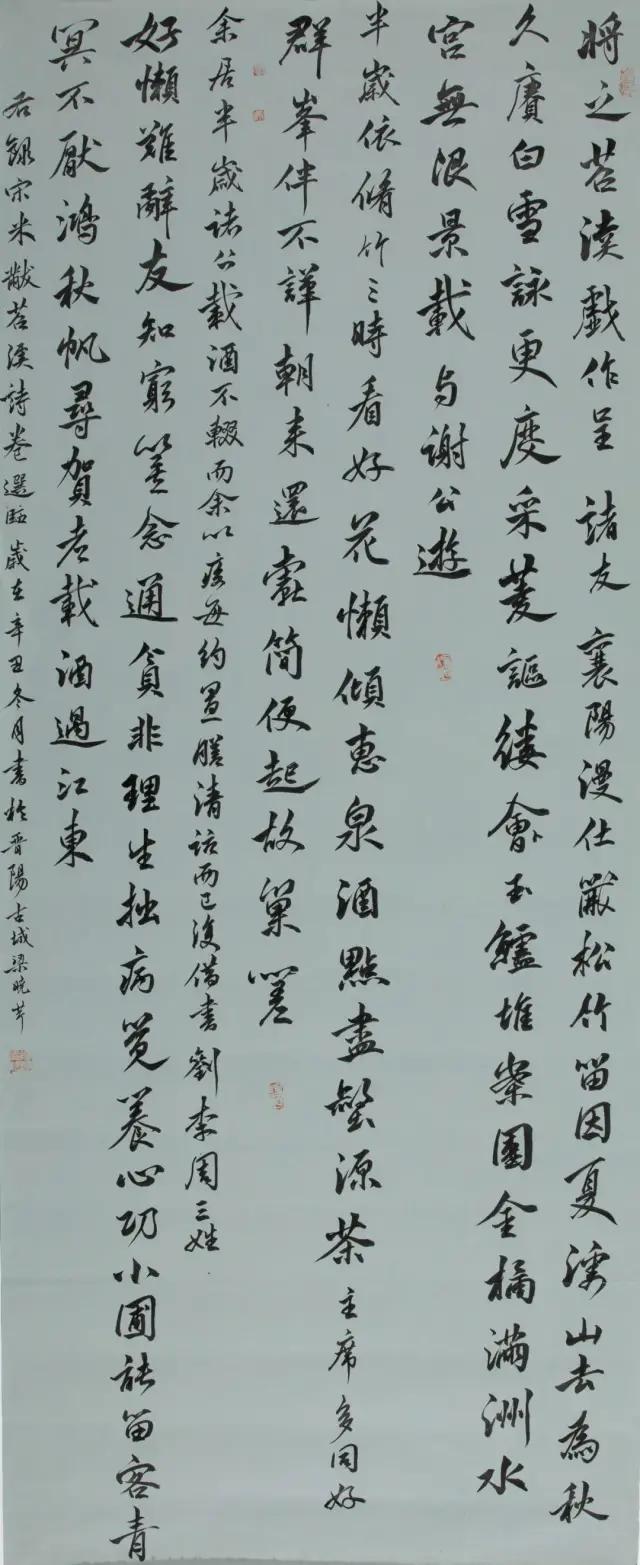 将之苕溪戏作呈諸友襄陽漫仕黻松竹留因夏溪山去為秋
久賡白雪詠更度采菱謳縷會玉鱸堆案團金橘滿洲水
宮無限景載与謝公遊
半歲依脩竹三時看好花懶傾惠泉酒點盡壑源茶主席多同好
群峯伴不譁朝来還蠹簡便起故巢嗟
余居半歲諸公載酒不輟而余以疾每約置膳清話而已復借書劉李周三姓
好懶難辭友知窮豈念通貧非理生拙病覺養心功小圃能留客青
冥不厭鴻秋帆尋賀老載酒過江東
右錄宋米黻苕溪詩卷選臨歲在辛丑冬月書於晉陽古城梁晓芳